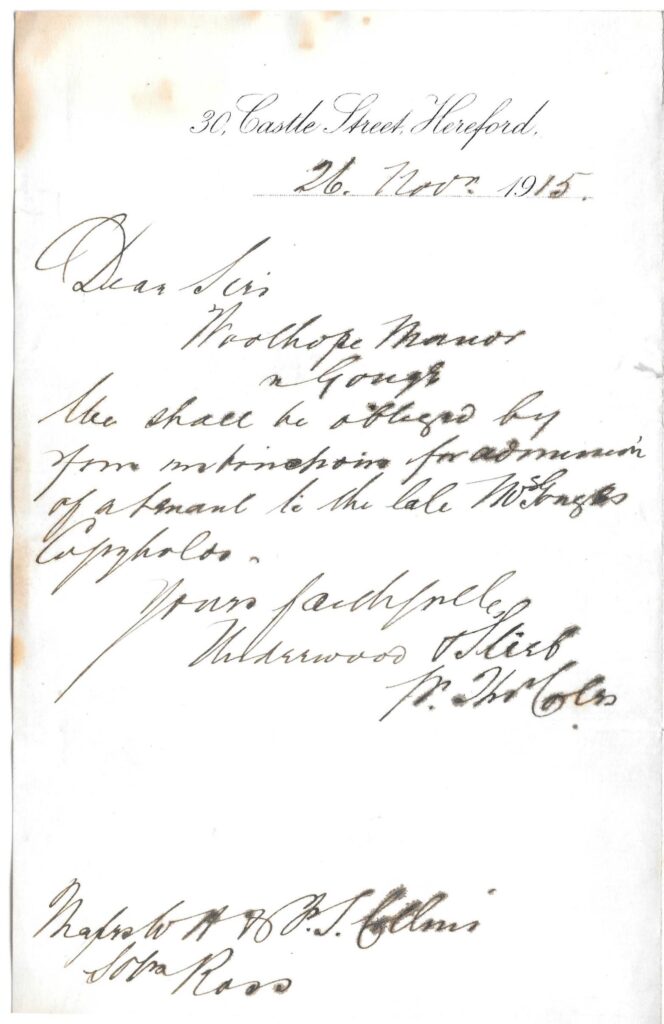 30, Castle Street, Hereford.
26. Novr. 1915.
Dear Sirs
Woolhope Manor
Gough
We shall be obliged by
your instructions for admission
of a tenant to the late Mrs Gough's
Copyholds.
Yours faithfully
Underwood & Steel
pr. Thos Coles
Messrs W H & F. S. Collins
Solrs Ross